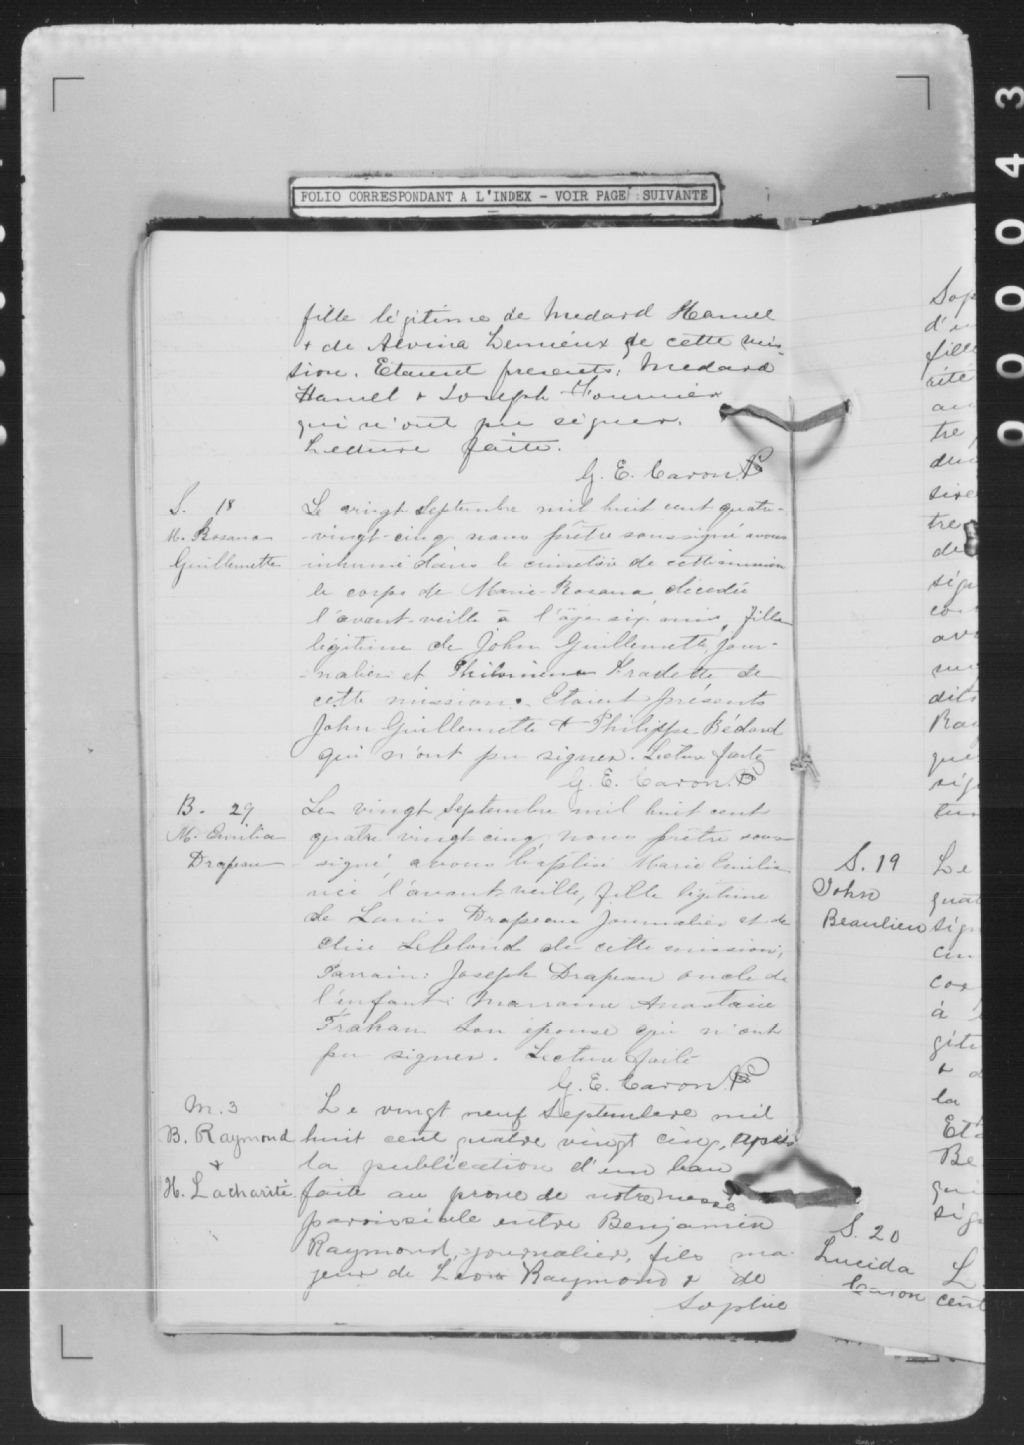 FOLIO CORRESPONDANT A L'INDEX - VOIR PAGE SUIVANTE
000043
fille légitime de Medard Hamel
+ de Alvina Lemieux de cette mis-
sion. Etaient presents: Medard
Hamel + Joseph Fournier
qui n'ont pu signer.
Lecture faite.
G. E. Caron Ptr
S. 18
M. Rosana
Guillemette
Le vingt Septembre mil huit cent quatre-
-vingt-cinq nous prêtre soussigné avons
inhumé dans le cimetière de cette mission
le corps de Marie-Rosana décédée
l'avant-veille à l'âge six mois, fille
légitime de John Guillemette, jour-
-nalier et Philomène Fradette de
cette mission. Etaient présents
John Guillemette + Philippe Bédard
qui n'ont pu signer. Lecture faite
G. E. Caron Ptr
B. 29
M. Emilia
Drapeau
Le vingt Septembre mil huit cent
quatre vingt cinq, nous prêtre sous-
signé, avons baptisé Marie Emilia
née l'avant veille, fille légitime
de Louis Drapeau Journalier et de
Elise Leblond de cette mission;
Parrain: Joseph Drapeau oncle de
l'enfant: marraine Anastasie
Trahan son épouse qui n'ont
pu signer. Lecture faite
G. E. Caron Ptr
M. 3
B. Raymond
+
H. Lacharité
Le vingt neuf Septembre mil
huit cent quatre vingt cinq, après
la publication d'un ban
faite au prone de notre messe
paroissiale entre Benjamin
Raymond, journalier, fils ma-
jeur de Léon Raymond & de
Sophie
S. 19
John
Beaulieu
S. 20
Lucida
Caron